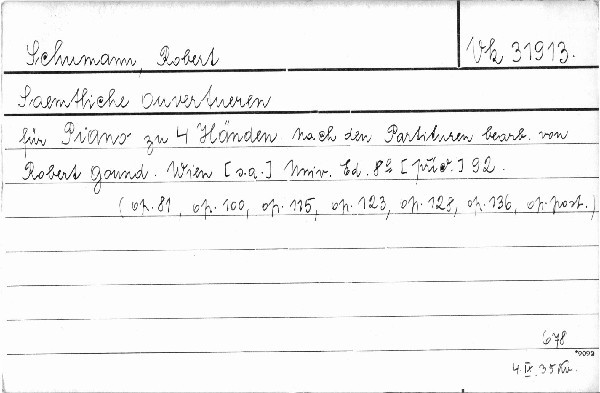 Schumann, Robert
Vk 31913.
Saemtliche Ouvertueren
für Piano zu 4 Händen nach den Partituren bearb. von
Robert Gound. Wien [s.a.] Univ. Ed. 8º [příč.] 92.
(op. 81, op. 100, op. 115, op. 123, op. 128, op. 136, op. post.)
678
*9092
4. IX. 35